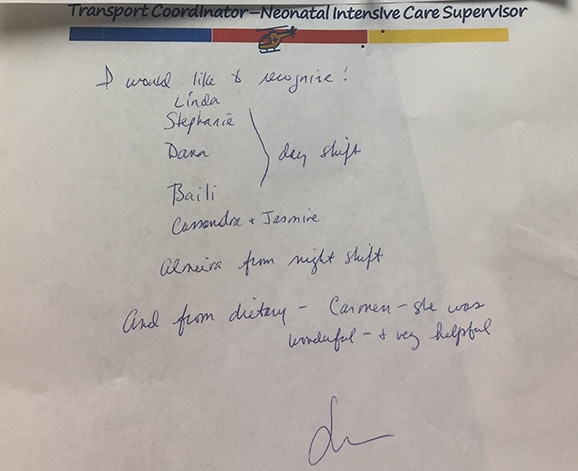 Transport Coordinator–Neonatal Intensive Care Supervisor
I would like to recognize!
Linda
Stephanie
Dana
day shift
Baili
Cassandra + Jasmine
Almeira from night shift
And from dietary – Carmen – she was
wonderful – + very helpful